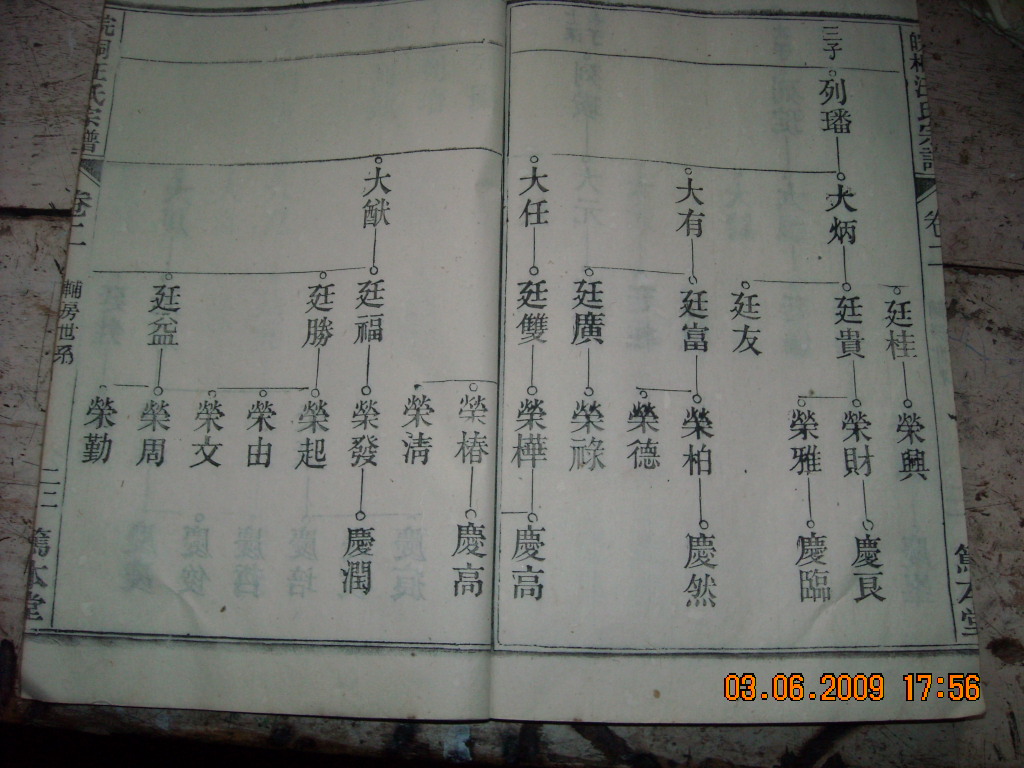 皖桐汪氏宗譜
卷二
篤本堂
三子
列璠
大炳
大有
大任
廷桂
廷貴
廷友
廷富
廷廣
廷雙
榮興
榮財
榮雅
榮柏
榮德
榮祿
榮樺
慶良
慶臨
慶然
慶高
大猷
廷福
廷勝
廷益
榮椿
榮清
榮發
榮起
榮由
榮文
榮周
榮勤
慶高
慶潤
皖桐汪氏宗譜
卷二
輔房世系
篤本堂
03.06.2009 17:56